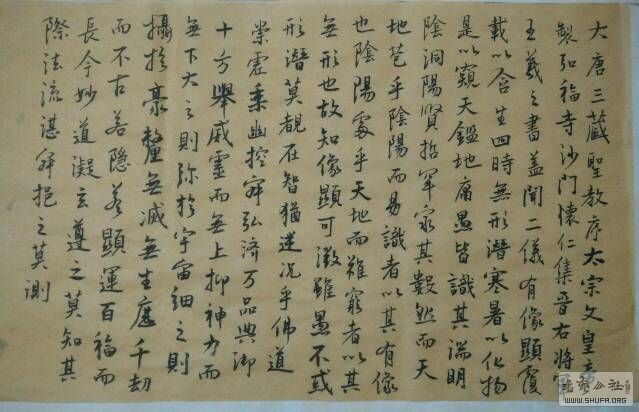 大唐三藏聖教序太宗文皇帝
製弘福寺沙門懷仁集晉右將軍
王羲之書蓋聞二儀有像顯覆
載以含生四時無形潛寒暑以化物
是以窺天鑑地庸愚皆識其端明
陰洞陽賢哲罕窮其數然而天
地苞乎陰陽而易識者以其有像
也陰陽處乎天地而難窮者以其
無形也故知像顯可徵雖愚不惑
形潛莫覩在智猶迷況乎佛道
崇虛乘幽控寂弘濟万品典御
十方舉威靈而無上抑神力而
無下大之則弥於宇宙細之則
攝於豪釐無滅無生歷千劫
而不古若隱若顯運百福而
長今妙道凝玄遵之莫知其
際法流湛寂挹之莫測
書法公社
WWW.SHUFA.ORG